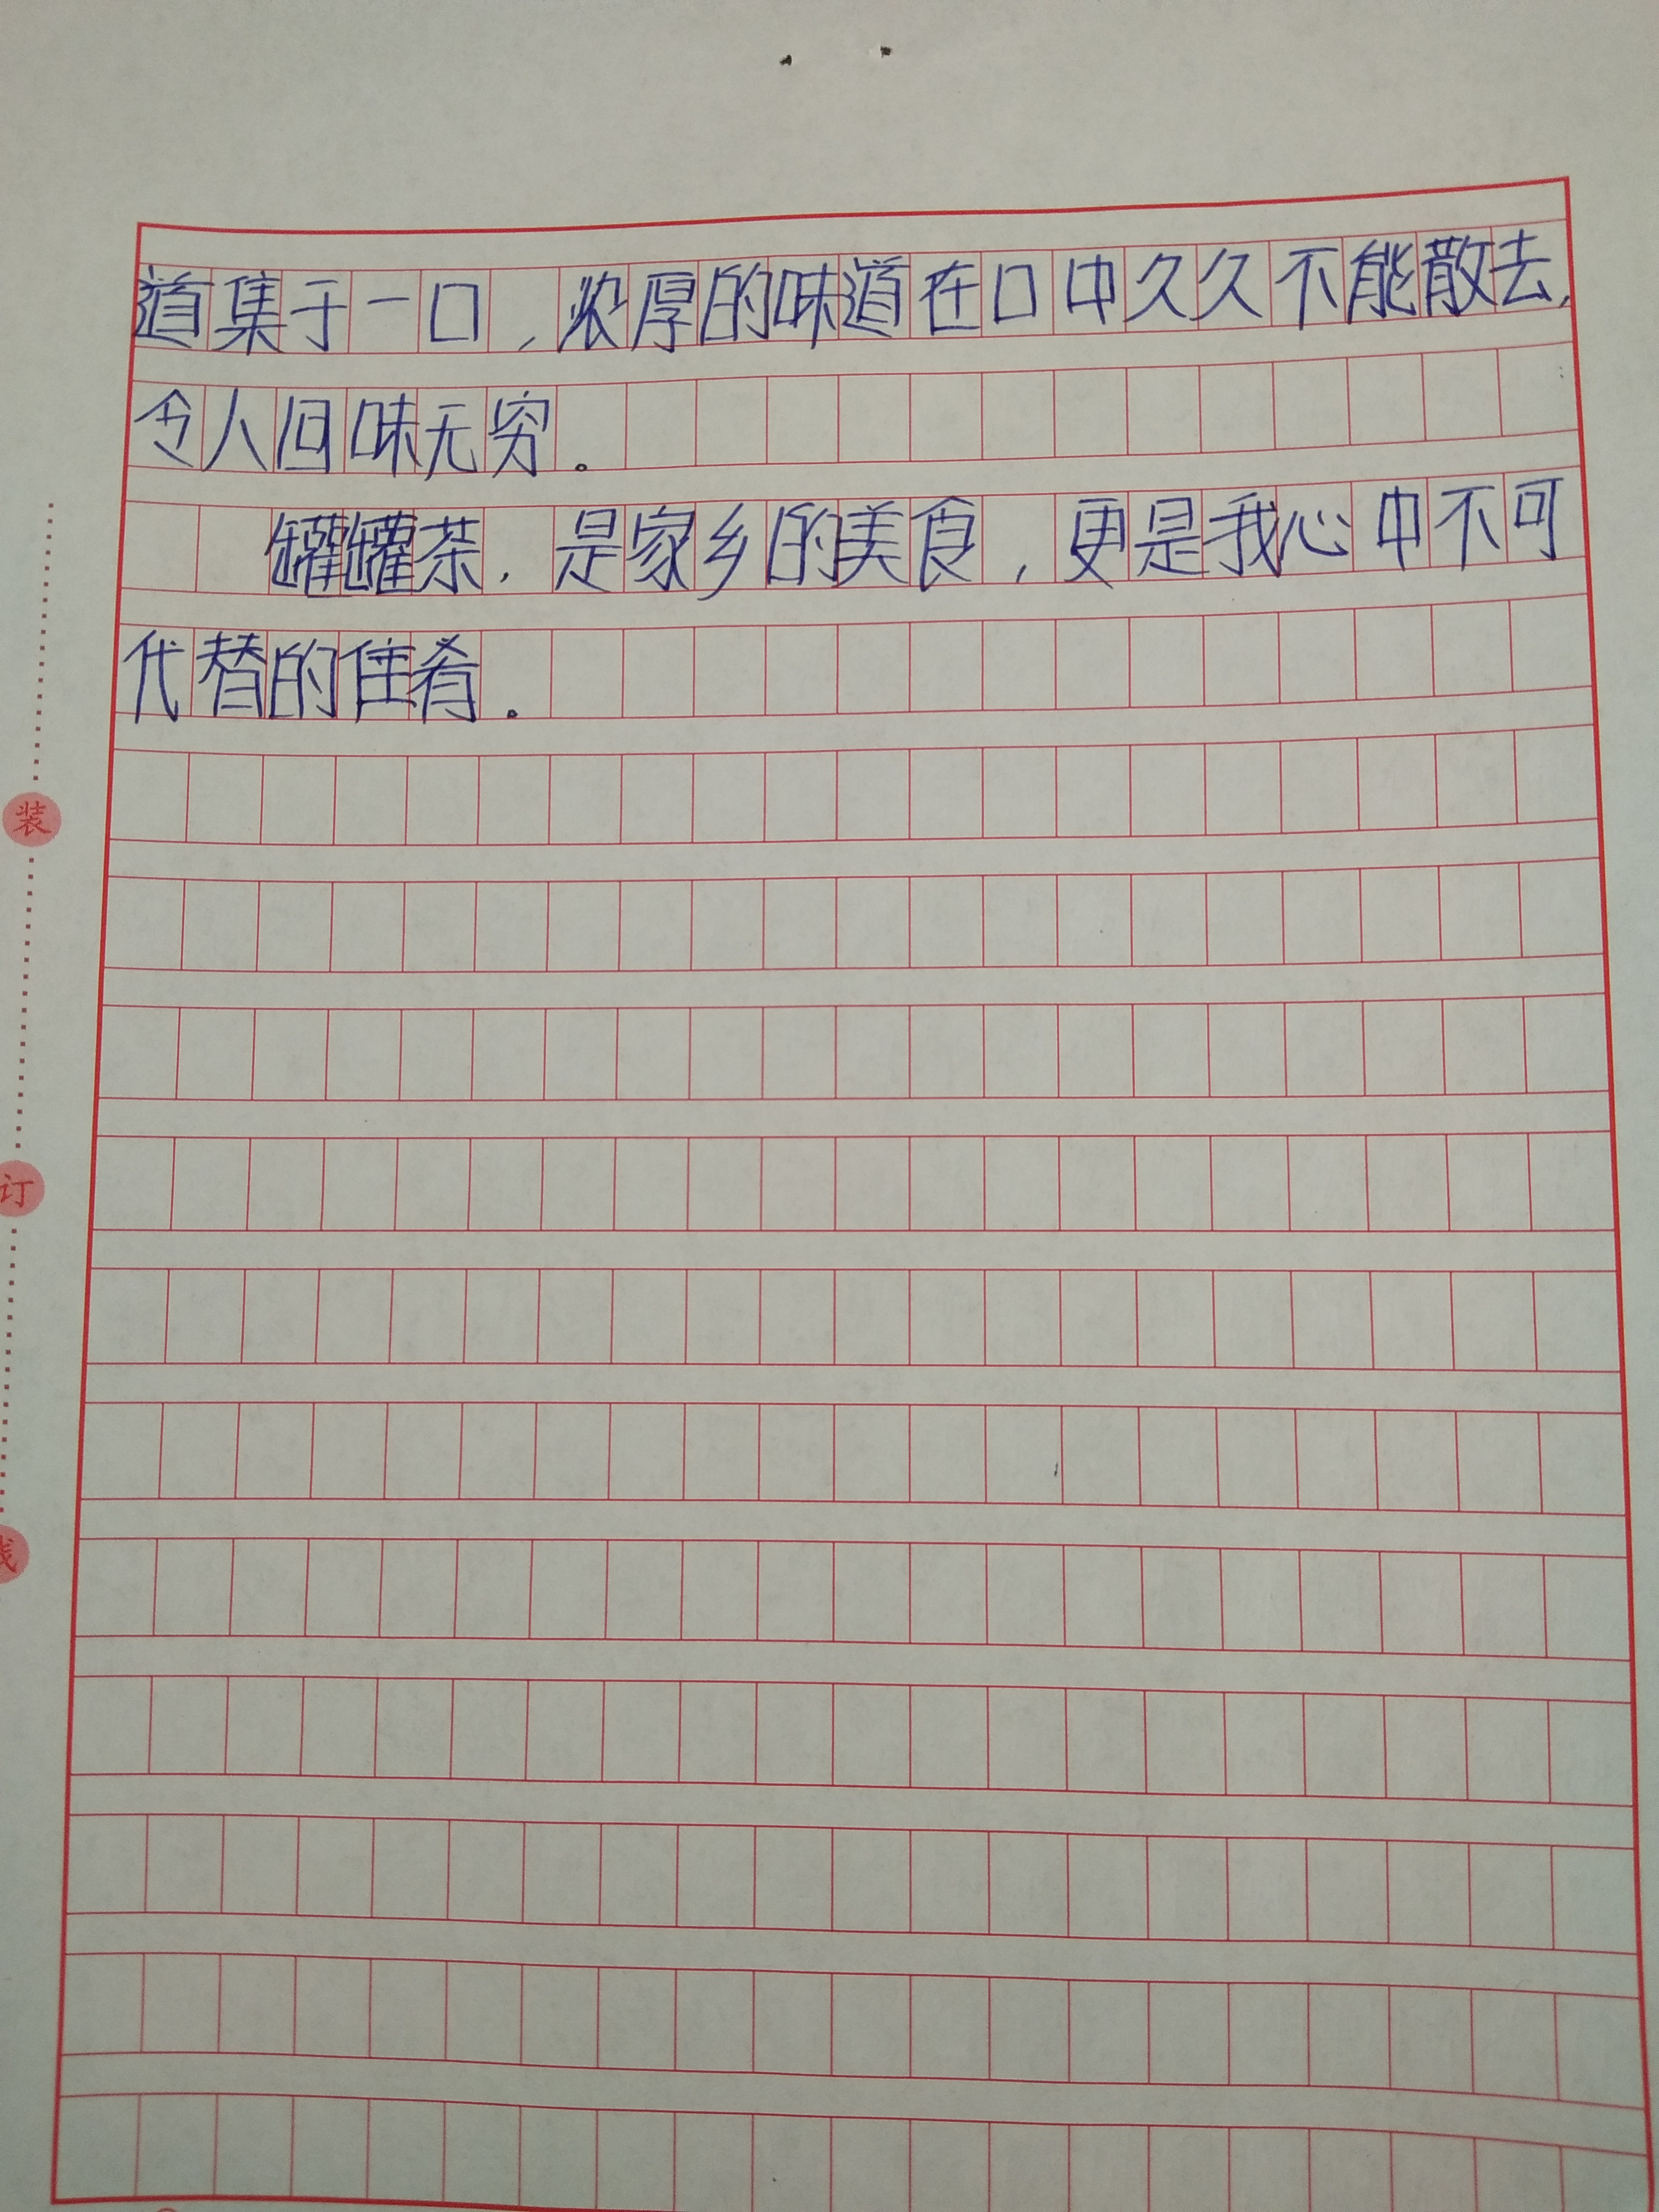 道集于一口，浓厚的味道在口中久久不能散去，
令人回味无穷。
罐罐茶，是家乡的美食，更是我心中不可
代替的佳肴。
装
订
线